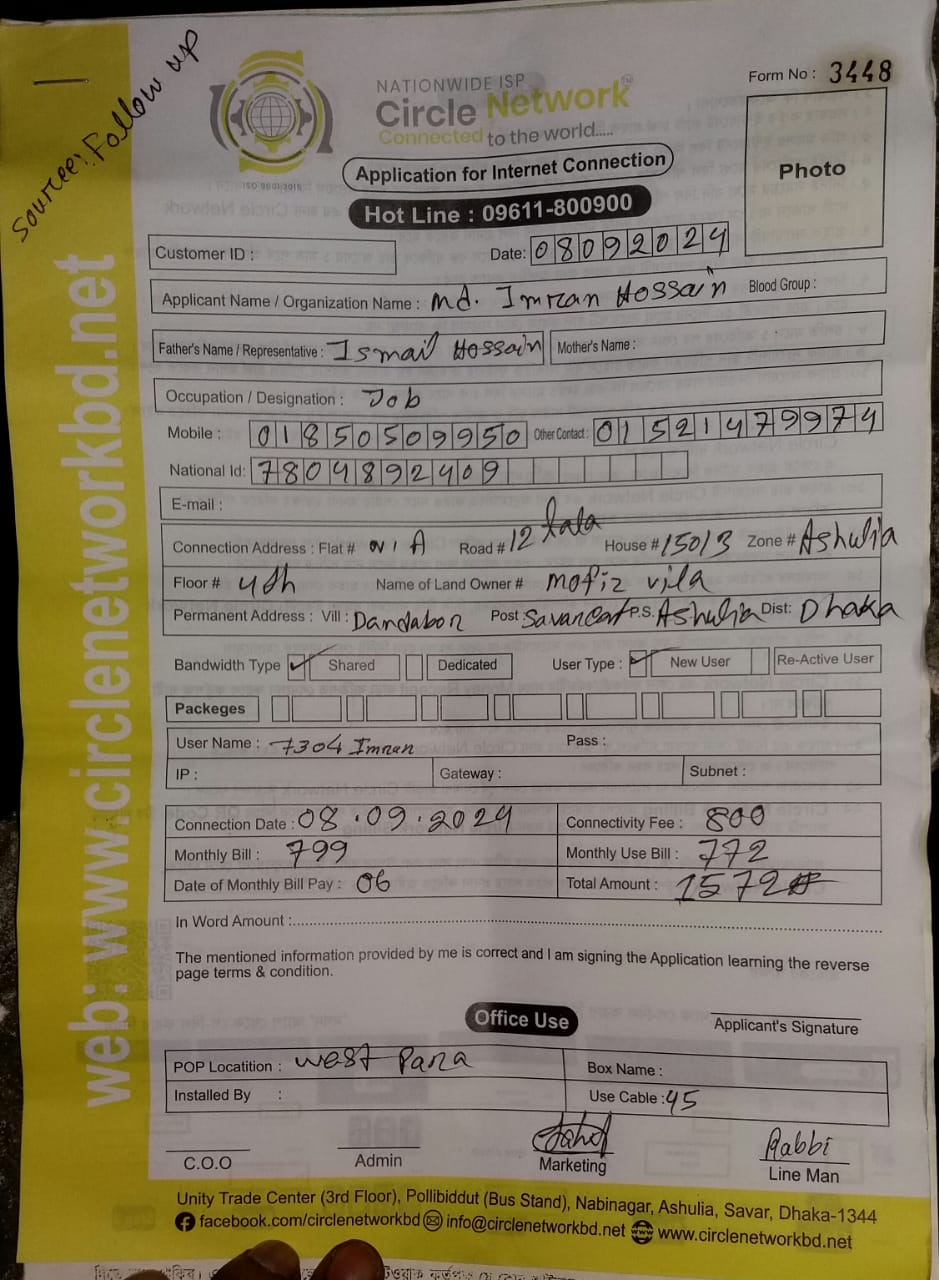 Source: Follow up
NATIONWIDE ISP
Circle Network
Connected to the world.....
ISO 9001:2015
Form No : 3448
Photo
Application for Internet Connection
Hot Line : 09611-800900
Customer ID :
Date: 08092024
Applicant Name / Organization Name : Md. Imran Hossain Blood Group :
Father's Name / Representative : Ismail Hossain Mother's Name :
Occupation / Designation : Job
Mobile : 01850509950 Other Contact : 01521479974
National Id: 7804892409
E-mail :
Connection Address : Flat # N/A Road # 12 tala House # 15013 Zone # Ashulia
Floor # 4th Name of Land Owner # mofiz vila
Permanent Address : Vill : Dandabor Post : Savar P.S. Ashulia Dist: Dhaka
Bandwidth Type Shared Dedicated User Type : New User Re-Active User
Packeges
User Name : 7304 Imran Pass :
IP : Gateway : Subnet :
Connection Date : 08.09.2024 Connectivity Fee : 800
Monthly Bill : 799 Monthly Use Bill : 772
Date of Monthly Bill Pay : 06 Total Amount : 1572
In Word Amount :
The mentioned information provided by me is correct and I am signing the Application learning the reverse
page terms & condition.
Office Use
Applicant's Signature
POP Locatition : West Para Box Name :
Installed By : Use Cable : 45
Rabbi
C.O.O Admin Marketing Line Man
Unity Trade Center (3rd Floor), Pollibiddut (Bus Stand), Nabinagar, Ashulia, Savar, Dhaka-1344
facebook.com/circlenetworkbd info@circlenetworkbd.net www.circlenetworkbd.net
web: www.circlenetworkbd.net